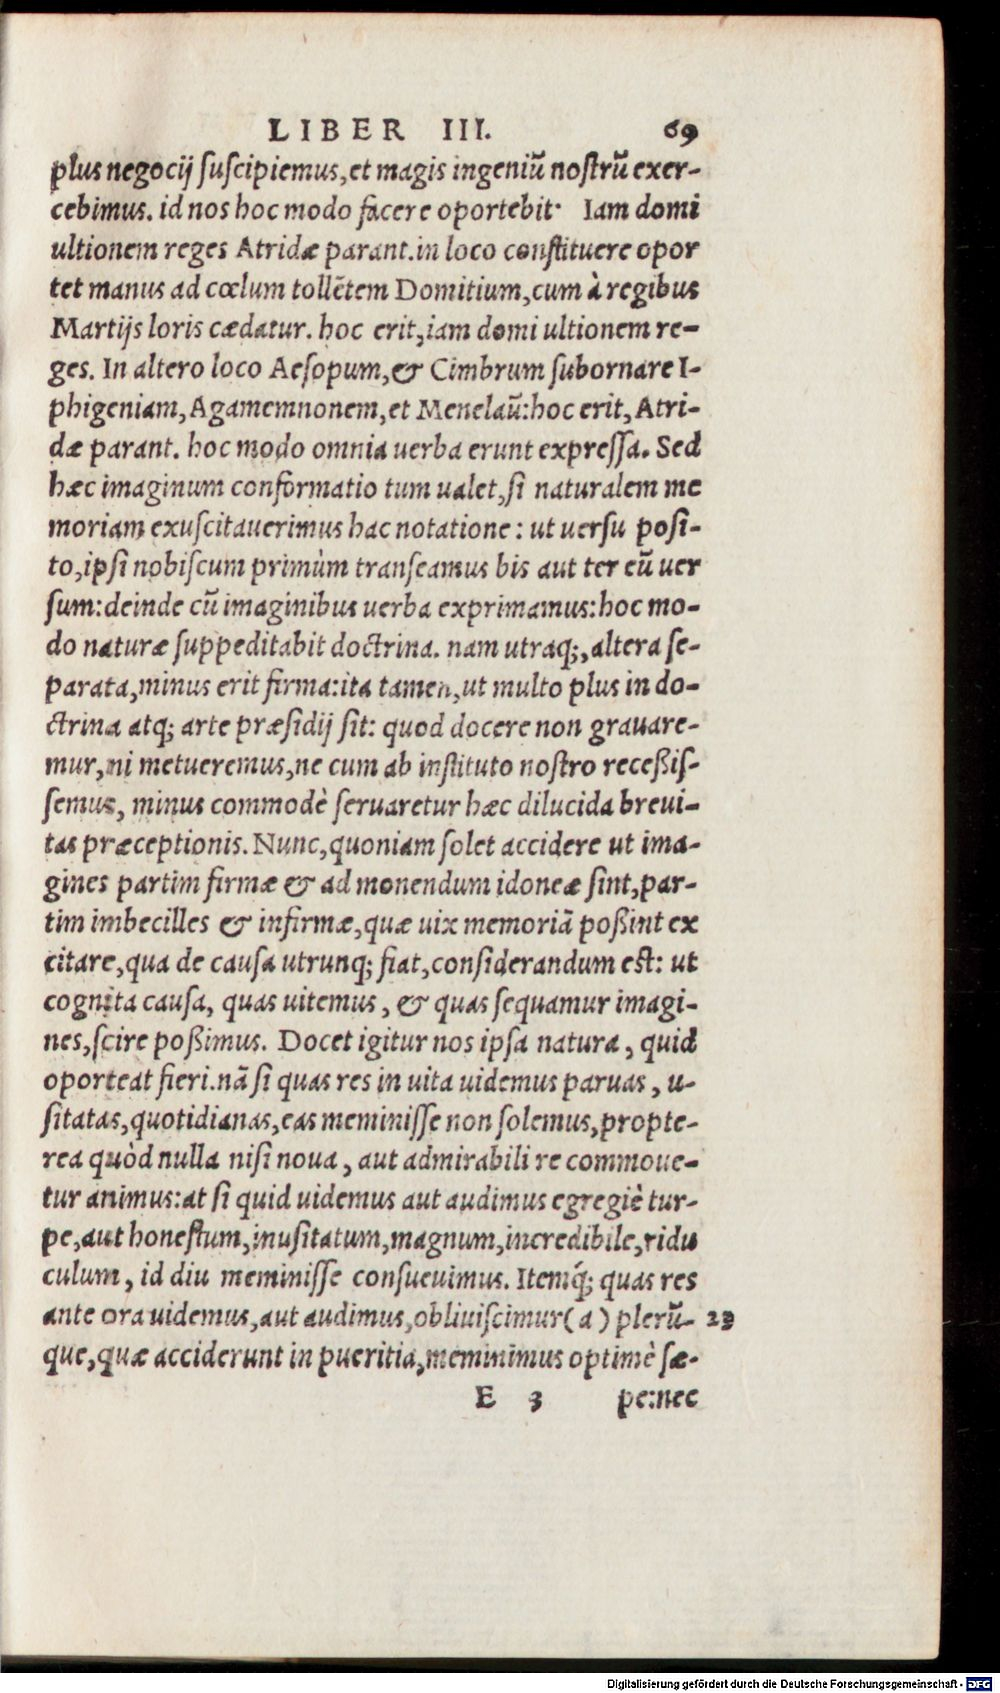 LIBER III. 69
plus negocij suscipiemus, et magis ingeniũ nostrũ exer-
cebimus. id nos hoc modo facere oportebit· Iam domi
ultionem reges Atridæ parant. in loco constituere opor
tet manus ad cœlum tollẽtem Domitium, cum à regibus
Martijs loris cædatur. hoc erit, iam domi ultionem re-
ges. In altero loco Aesopum, & Cimbrum subornare I-
phigeniam, Agamemnonem, et Menelaũ: hoc erit, Atri-
dæ parant. hoc modo omnia uerba erunt expressa. Sed
hæc imaginum conformatio tum ualet, si naturalem me
moriam exuscitauerimus hac notatione: ut uersu posi-
to, ipsi nobiscum primùm transeamus bis aut ter eũ uer
sum: deinde cũ imaginibus uerba exprimamus: hoc mo-
do naturæ suppeditabit doctrina. nam utraq;, altera se-
parata, minus erit firma: ita tamen, ut multo plus in do-
ctrina atq; arte præsidij sit: quod docere non grauare-
mur, ni metueremus, ne cum ab instituto nostro receßis-
semus, minus commodè seruaretur hæc dilucida breui-
tas præceptionis. Nunc, quoniam solet accidere ut ima-
gines partim firmæ & ad monendum idoneæ sint, par-
tim imbecilles & infirmæ, quæ uix memoriã poßint ex
citare, qua de causa utrunq; fiat, considerandum est: ut
cognita causa, quas uitemus, & quas sequamur imagi-
nes, scire poßimus. Docet igitur nos ipsa natura, quid
oporteat fieri. nã si quas res in uita uidemus paruas, u-
sitatas, quotidianas, eas meminisse non solemus, propte-
rea quòd nulla nisi noua, aut admirabili re commoue-
tur animus: at si quid uidemus aut audimus egregiè tur-
pe, aut honestum, inusitatum, magnum, incredibile, ridu
culum, id diu meminisse consueuimus. Itemq́; quas res
ante ora uidemus, aut audimus, obliuiscimur (a) plerũ- 23
que, quæ acciderunt in pueritia, meminimus optimè sæ-
E 3 pe: nec
Digitalisierung gefördert durch die Deutsche Forschungsgemeinschaft - DFG